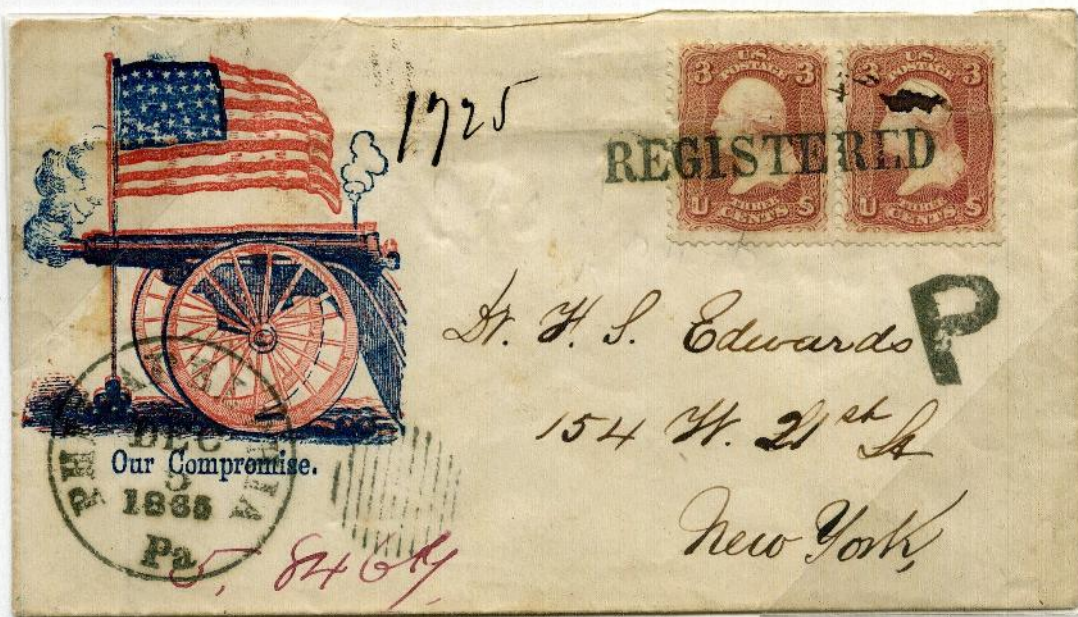 1725
3 U.S. POSTAGE 3
THREE
U CENTS S
3 U.S. POSTAGE 3
THREE
U CENTS S
REGISTERED
P
Dr. H. S. Edwards
154 W. 21st St
New York,
Our Compromise.
PHILADELPHIA
DEC
5
1865
Pa